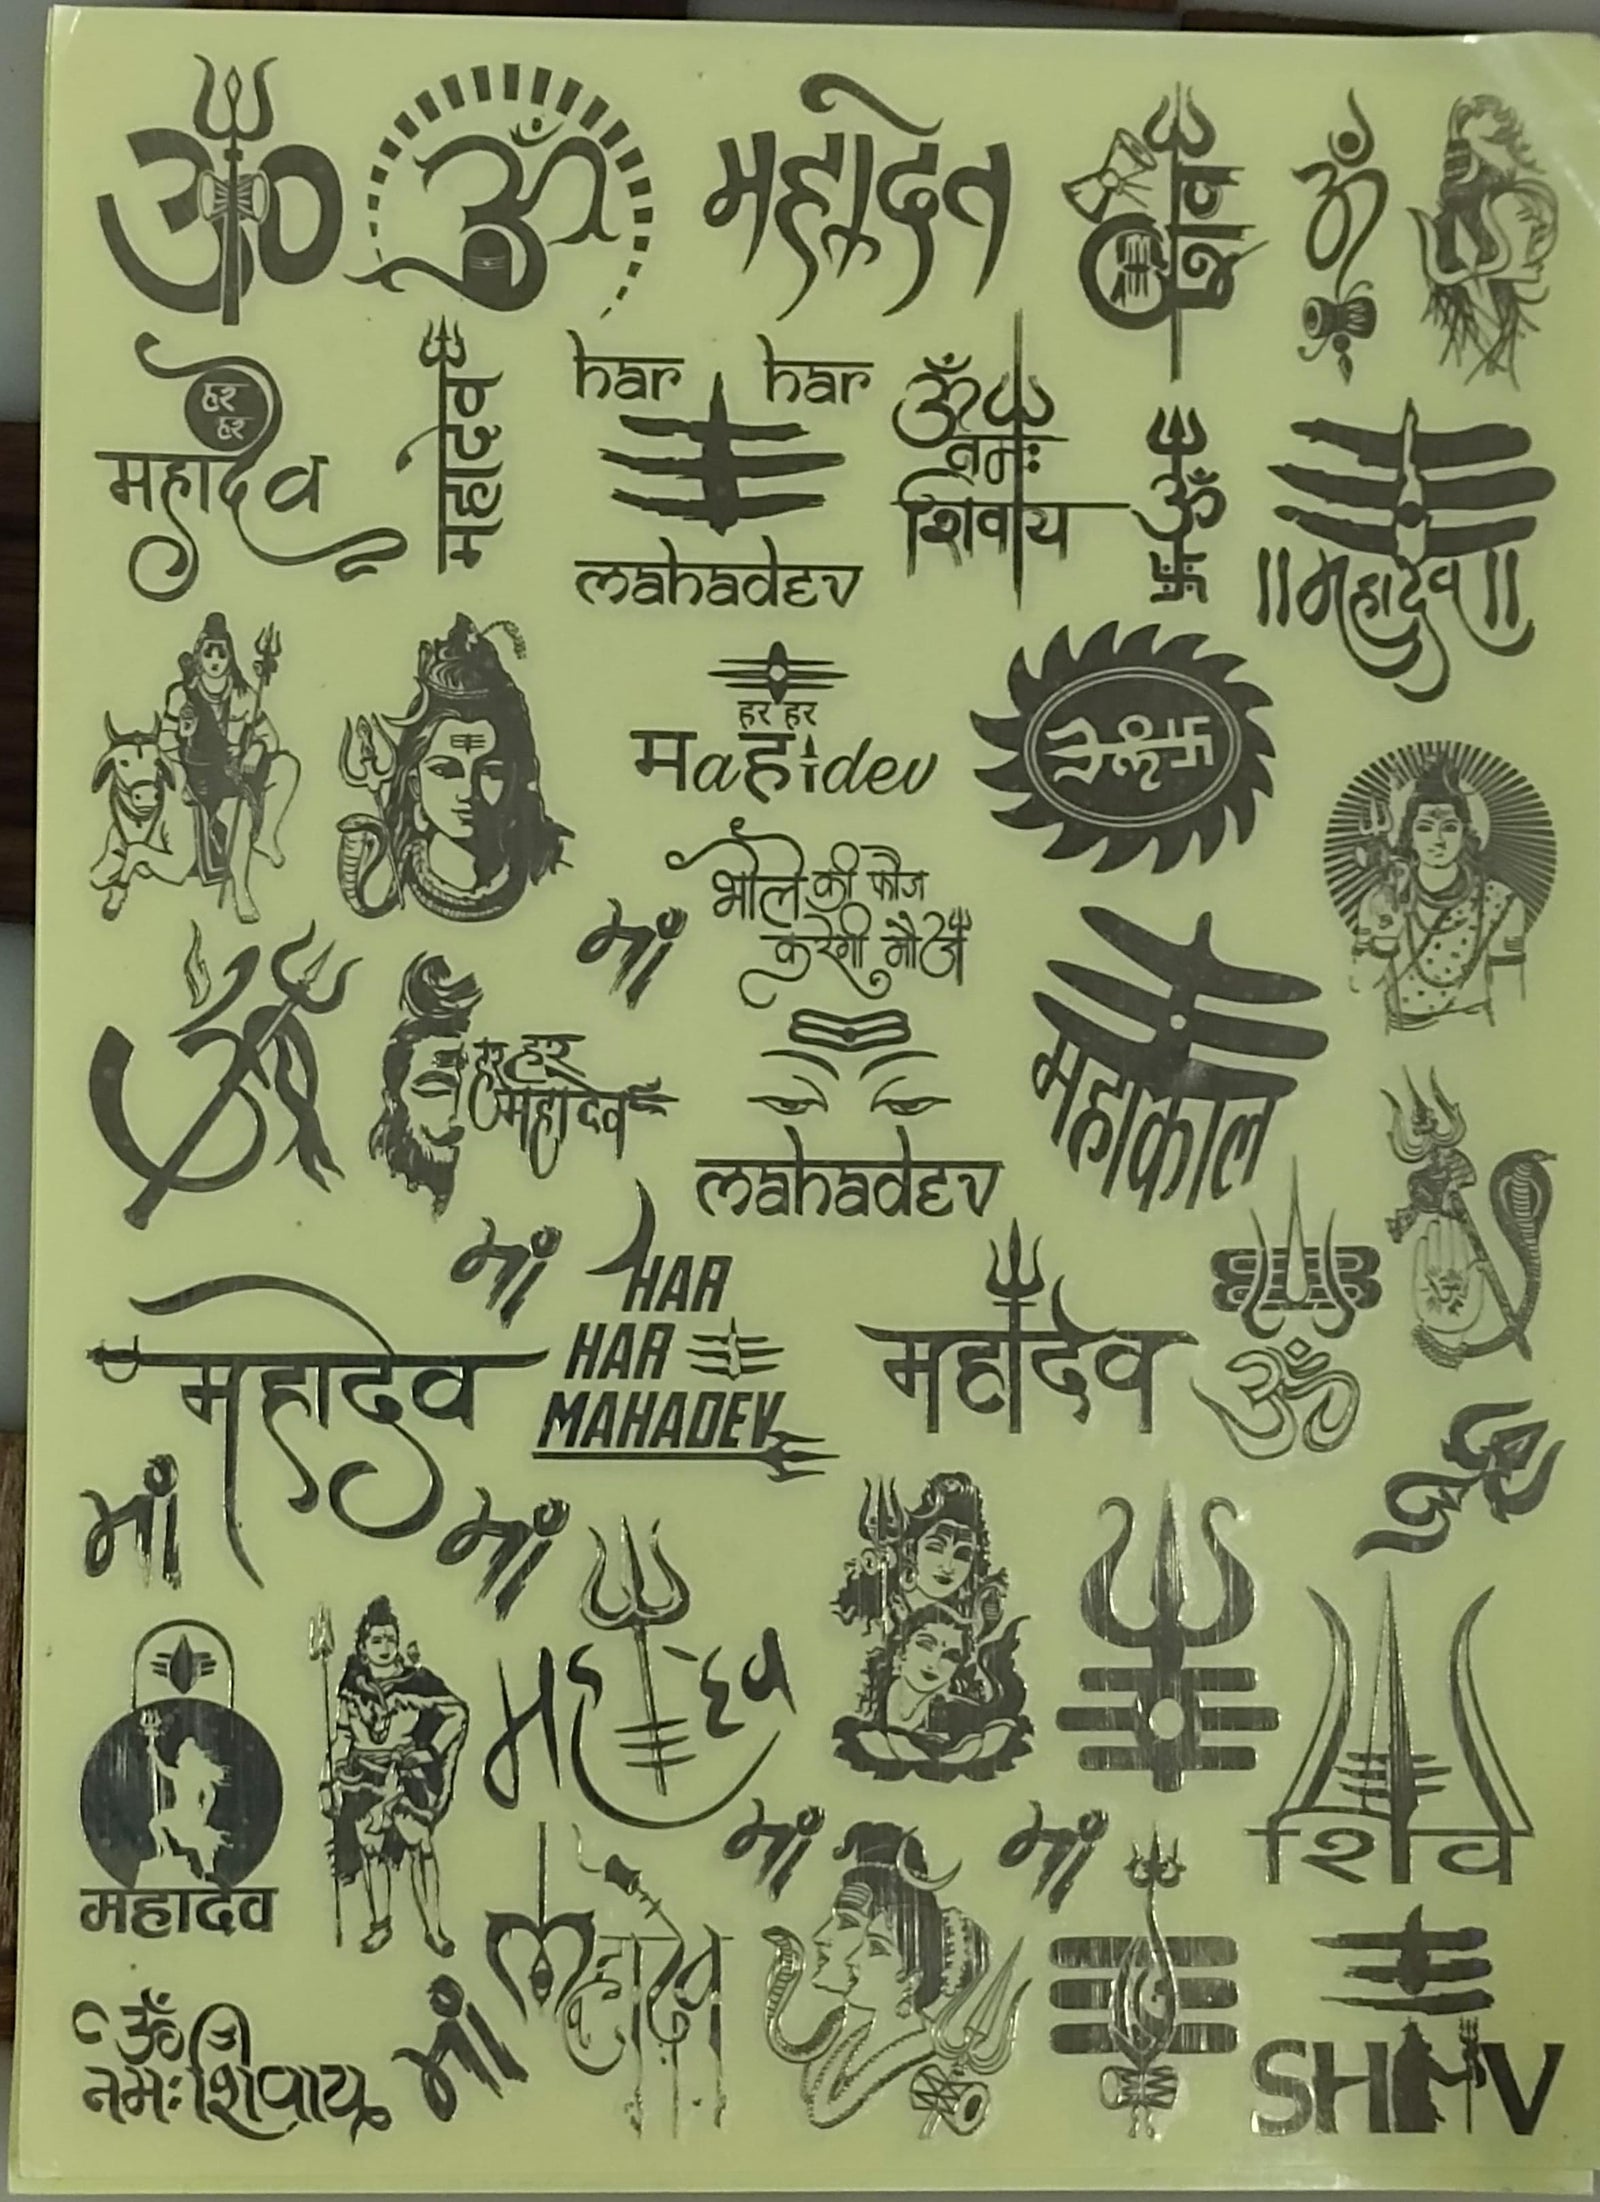 ॐ
ॐ
महादेव
शिव
ॐ
हर
हर
महादेव
महादेव
har har
mahadev
ॐ
नमः
शिवाय
ॐ
॥महादेव॥
हर हर
मaहाdev
भोले की फौज
करेगी मौज
माँ
महाकाल
ॐ
हर हर
महादेव
mahadev
माँ
HAR
HAR
MAHADEV
महादेव
महादेव
ॐ
माँ
माँ
महादेव
शिव
महादेव
माँ
माँ
महादेव
ॐ
नमः शिवाय
माँ
SHIV